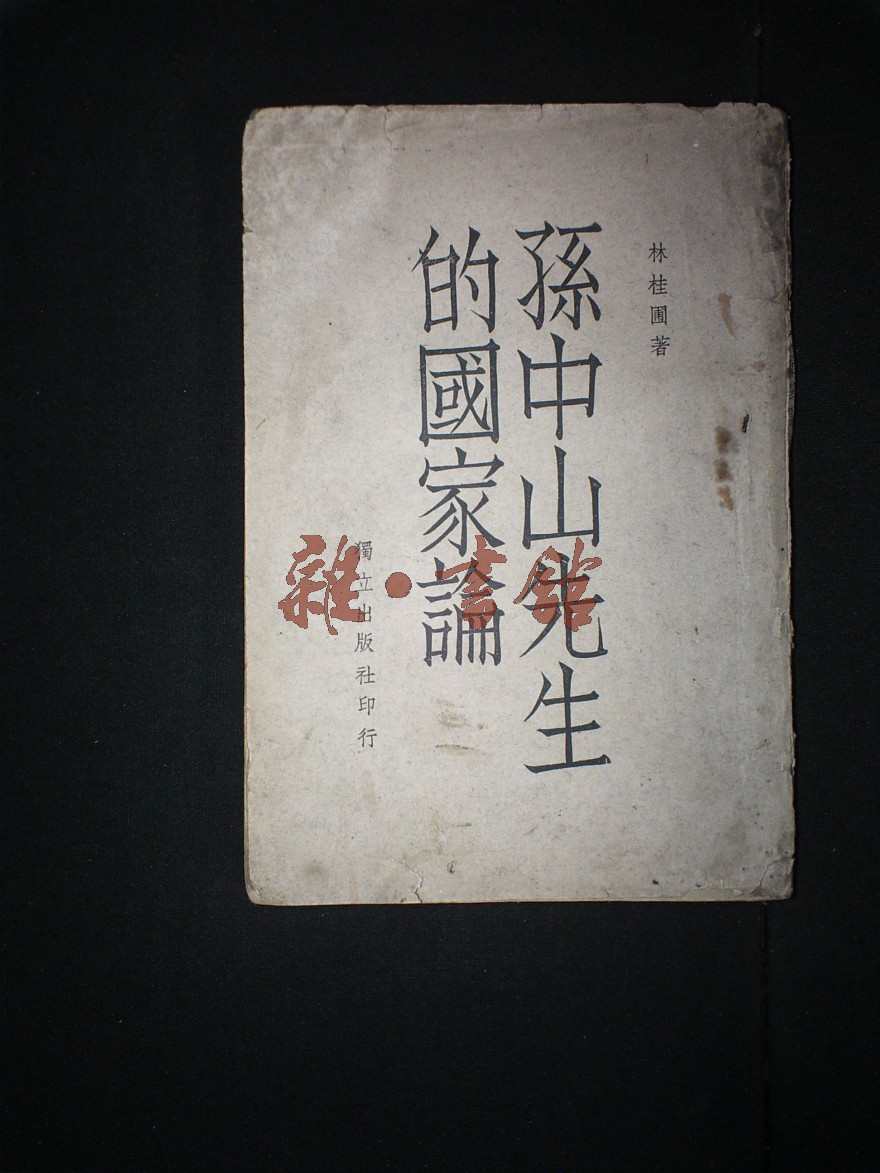 林桂圃著
孫中山先生
的國家論
獨立出版社印行
雜·書館